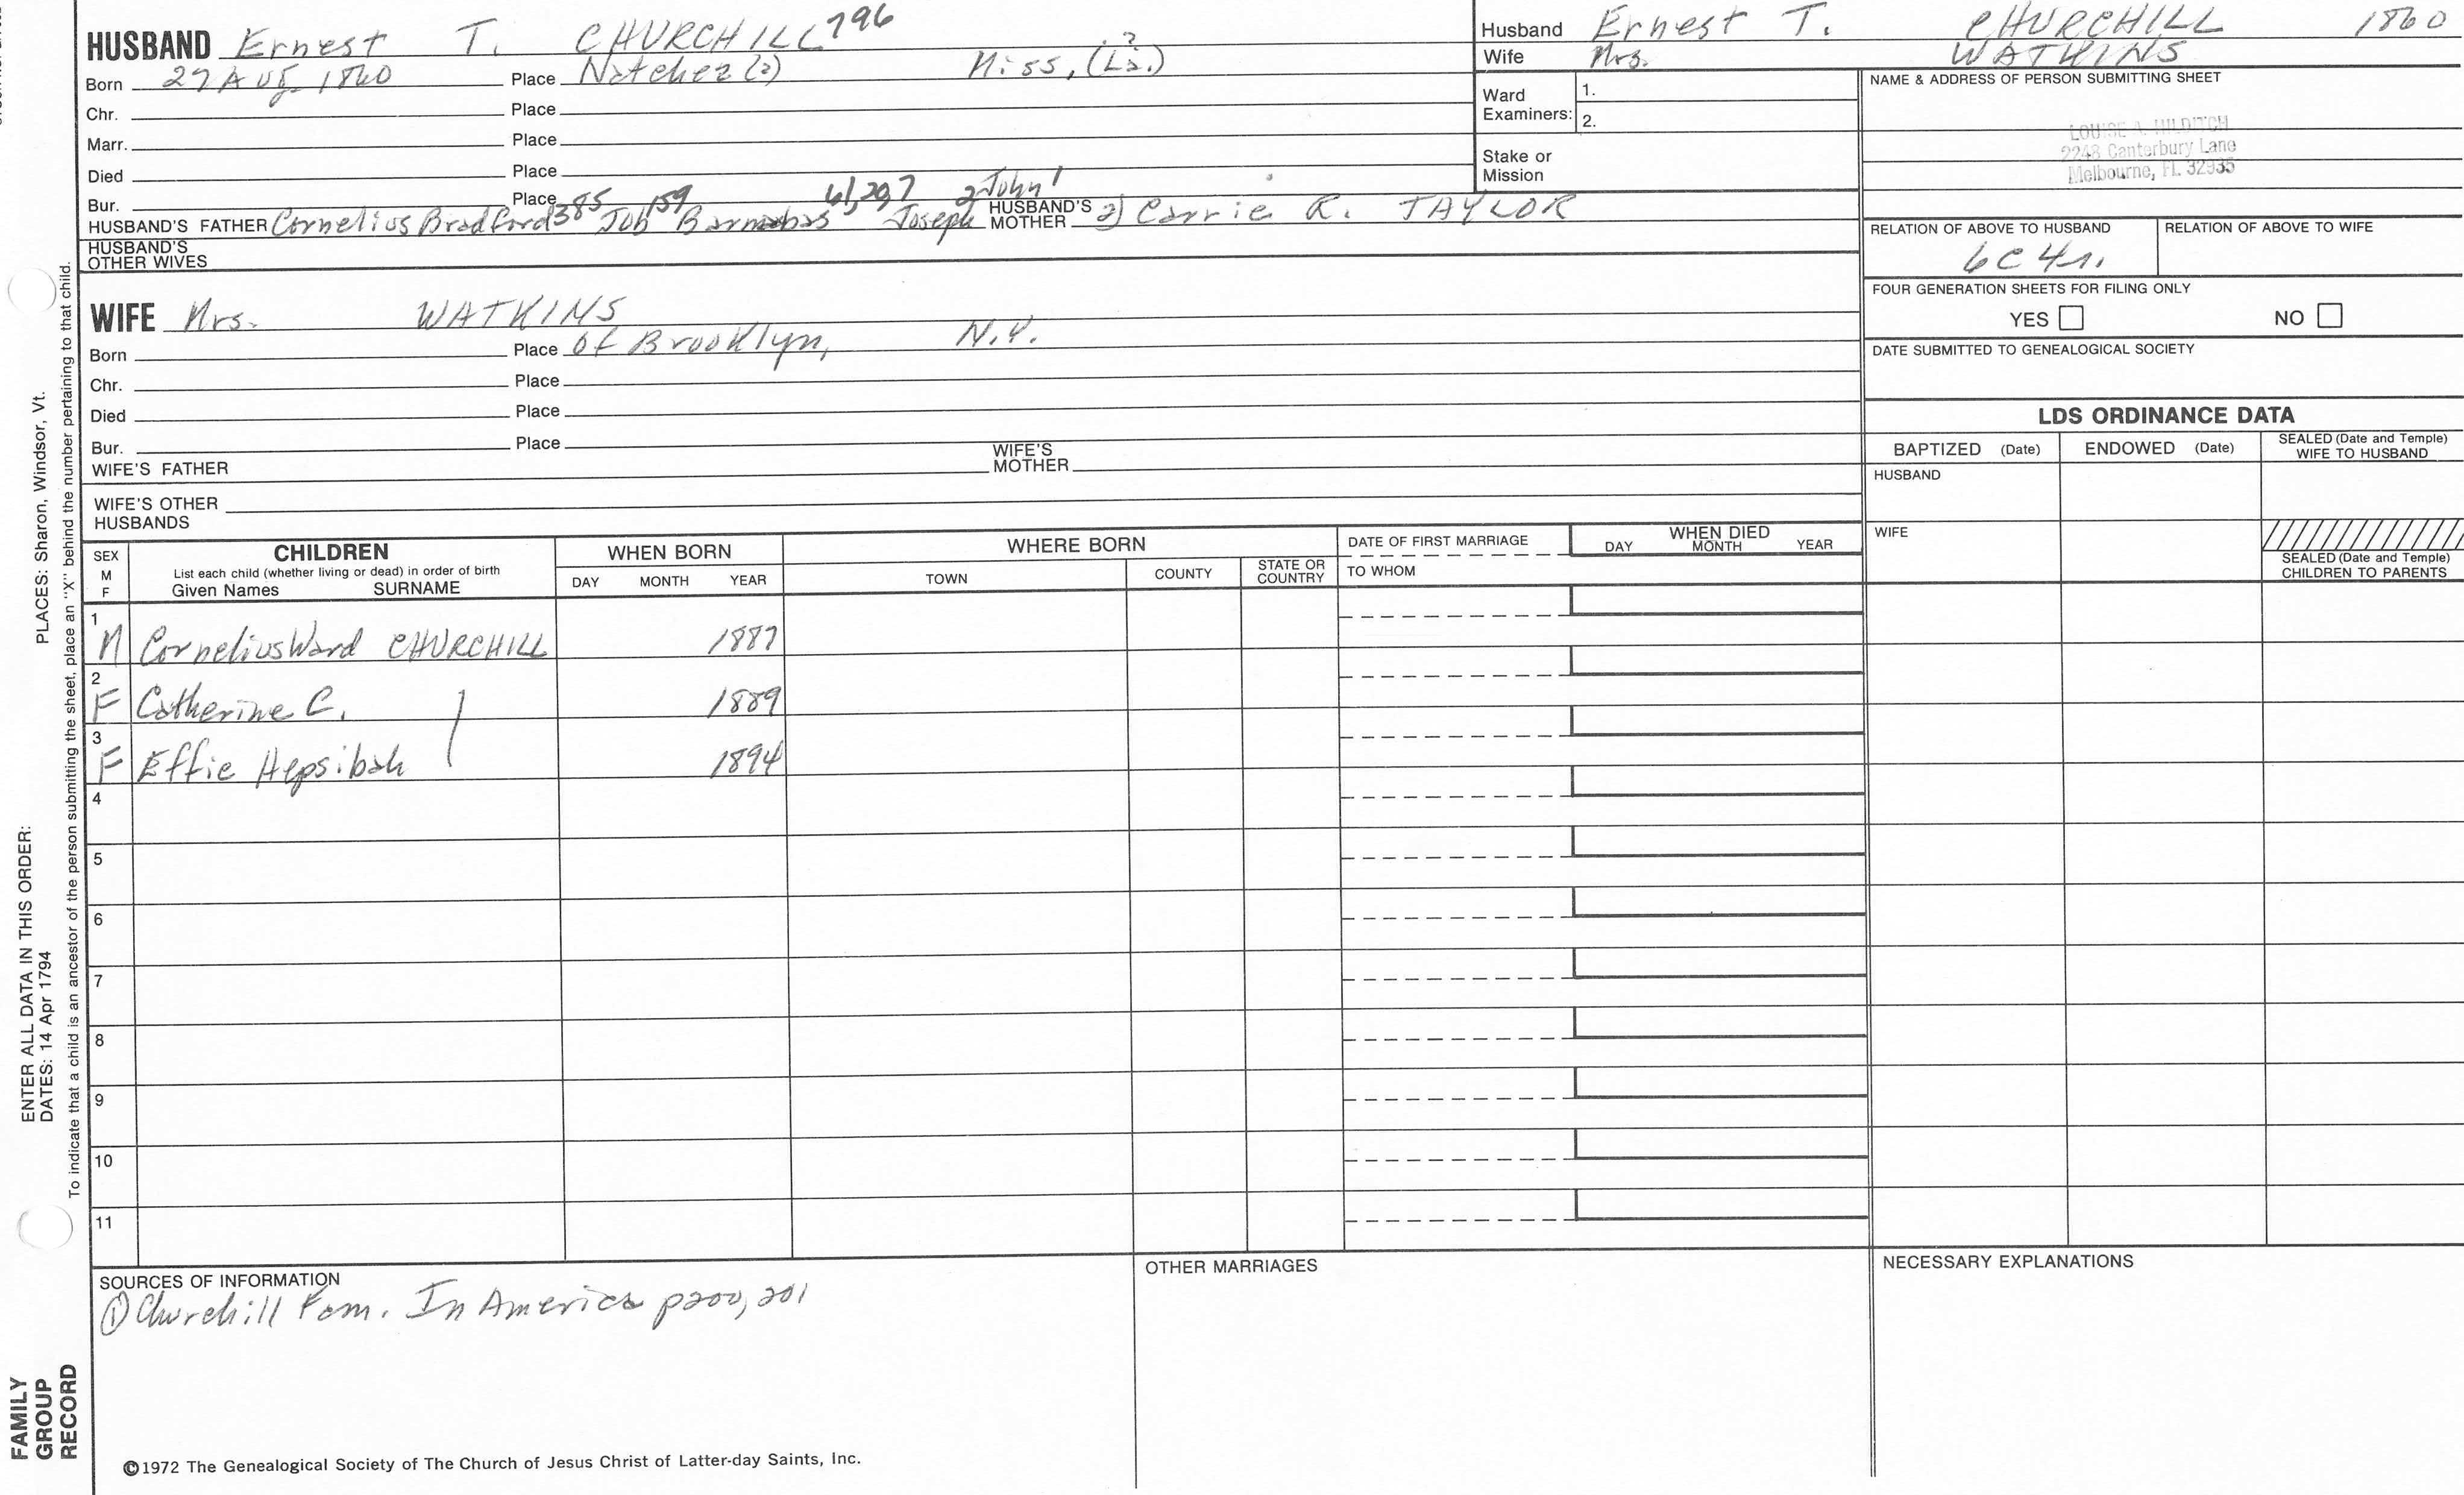 HUSBAND Ernest T. CHURCHILL 796
Born 27 Aug 1860 Place Natchez (?) Miss, (La.)?
Chr. Place
Marr. Place
Died Place
Bur. Place
HUSBAND'S FATHER Cornelius Bradford 385 Job 159 Barnabas 61,20,7 Joseph 2 John 1 HUSBAND'S MOTHER 2) Carrie R. TAYLOR
HUSBAND'S OTHER WIVES
Husband Ernest T. CHURCHILL 1860
Wife Mrs. WATKINS
Ward Examiners: 1.
2.
Stake or Mission
NAME & ADDRESS OF PERSON SUBMITTING SHEET
LOUISE A. HILDITCH
2248 Canterbury Lane
Melbourne, Fl. 32935
RELATION OF ABOVE TO HUSBAND RELATION OF ABOVE TO WIFE
6C4r.
FOUR GENERATION SHEETS FOR FILING ONLY
YES NO
DATE SUBMITTED TO GENEALOGICAL SOCIETY
WIFE Mrs. WATKINS
Born Place of Brooklyn, N.Y.
Chr. Place
Died Place
Bur. Place
WIFE'S FATHER WIFE'S MOTHER
WIFE'S OTHER HUSBANDS
LDS ORDINANCE DATA
BAPTIZED (Date) ENDOWED (Date) SEALED (Date and Temple) WIFE TO HUSBAND
HUSBAND
WIFE
SEALED (Date and Temple) CHILDREN TO PARENTS
SEX M F CHILDREN WHEN BORN WHERE BORN DATE OF FIRST MARRIAGE WHEN DIED
List each child (whether living or dead) in order of birth
Given Names SURNAME DAY MONTH YEAR TOWN COUNTY STATE OR COUNTRY TO WHOM DAY MONTH YEAR
1 M Cornelius Ward CHURCHILL 1887
2 F Catherine C. 1889
3 F Effie Hepsibah 1894
4
5
6
7
8
9
10
11
SOURCES OF INFORMATION
① Churchill Fam. In America p200, 201
OTHER MARRIAGES
NECESSARY EXPLANATIONS
©1972 The Genealogical Society of The Church of Jesus Christ of Latter-day Saints, Inc.
FAMILY GROUP RECORD
ENTER ALL DATA IN THIS ORDER:
DATES: 14 Apr 1794
PLACES: Sharon, Windsor, Vt.
To indicate that a child is an ancestor of the person submitting the sheet, place an "X" behind the number pertaining to that child.